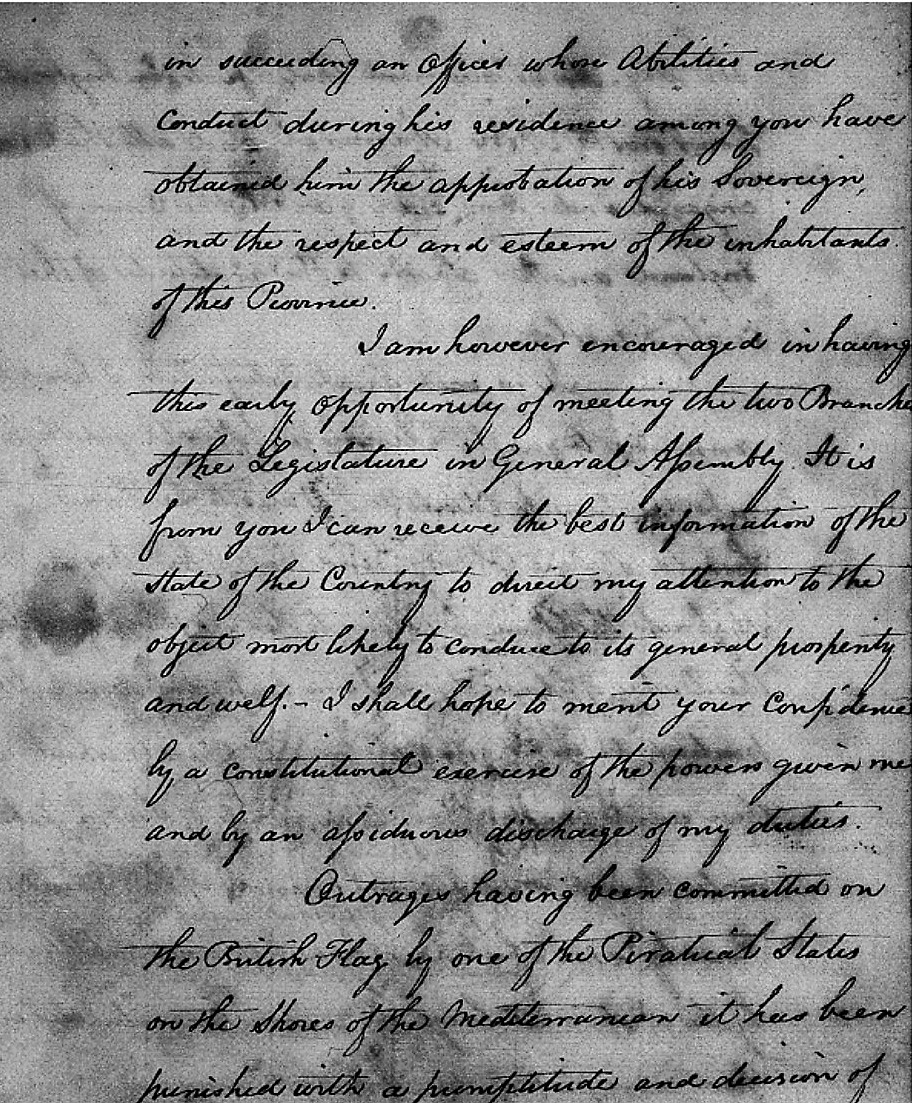 in succeeding an Officer whose Abilities and
Conduct during his residence among you have
obtained him the approbation of his Sovereign,
and the respect and esteem of the inhabitants
of this Province.
I am however encouraged in having
this early opportunity of meeting the two Branche
of the Legislature in General Assembly. It is
from you I can receive the best information of the
state of the Country to direct my attention to the
object most likely to conduce to its general prosperity
and welf. - I shall hope to merit your Confidence
by a constitutional exercise of the powers given me
and by an assiduous discharge of my duties.
Outrages having been committed on
the British Flag by one of the Piratical States
on the Shores of the Mediterranean it has been
punished with a pumptitude and decision of